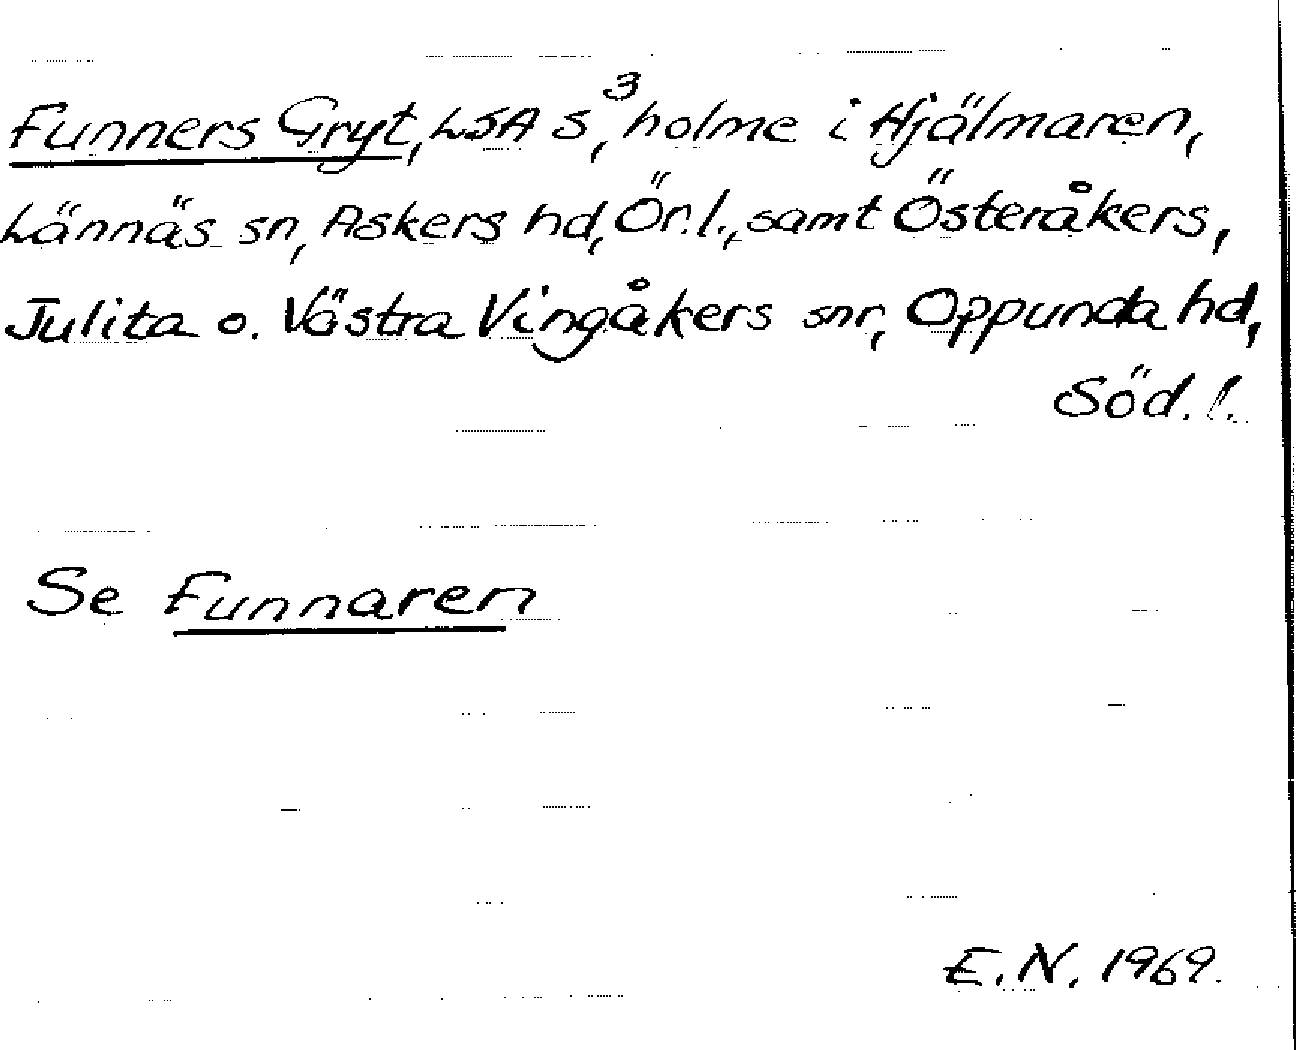 Funners Gryt, LSA S³, holme i Hjälmaren,
Lännäs sn, Askers hd, Ör. l., samt Österåkers,
Julita o. Västra Vingåkers snr, Oppunda hd,
Söd. l.
Se Funnaren
E. N. 1969.